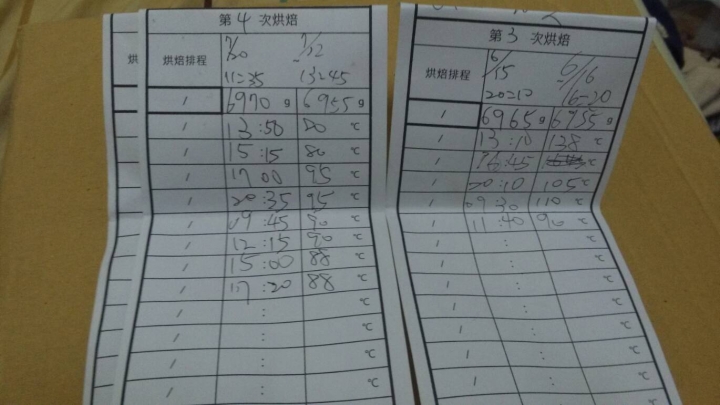 烘
第4次烘焙
烘焙排程 7/20 7/22
11:35 13:45
/ 6970g 6955g
/ 13:50 80℃
/ 15:15 80℃
/ 17:00 95℃
/ 20:35 95℃
/ 09:45 90℃
/ 12:15 90℃
/ 15:00 88℃
/ 17:20 88℃
/ : ℃
/ : ℃
/ : ℃
/ : ℃
第3次烘焙
烘焙排程 6/15 6/16
20:10 16:20
/ 6965g 6955g
/ 13:10 138℃
/ 16:45 ℃
/ 20:10 105℃
/ 09:30 110℃
/ 11:40 90℃
/ : ℃
/ : ℃
/ : ℃
/ : ℃
/ : ℃
/ : ℃
/ : ℃